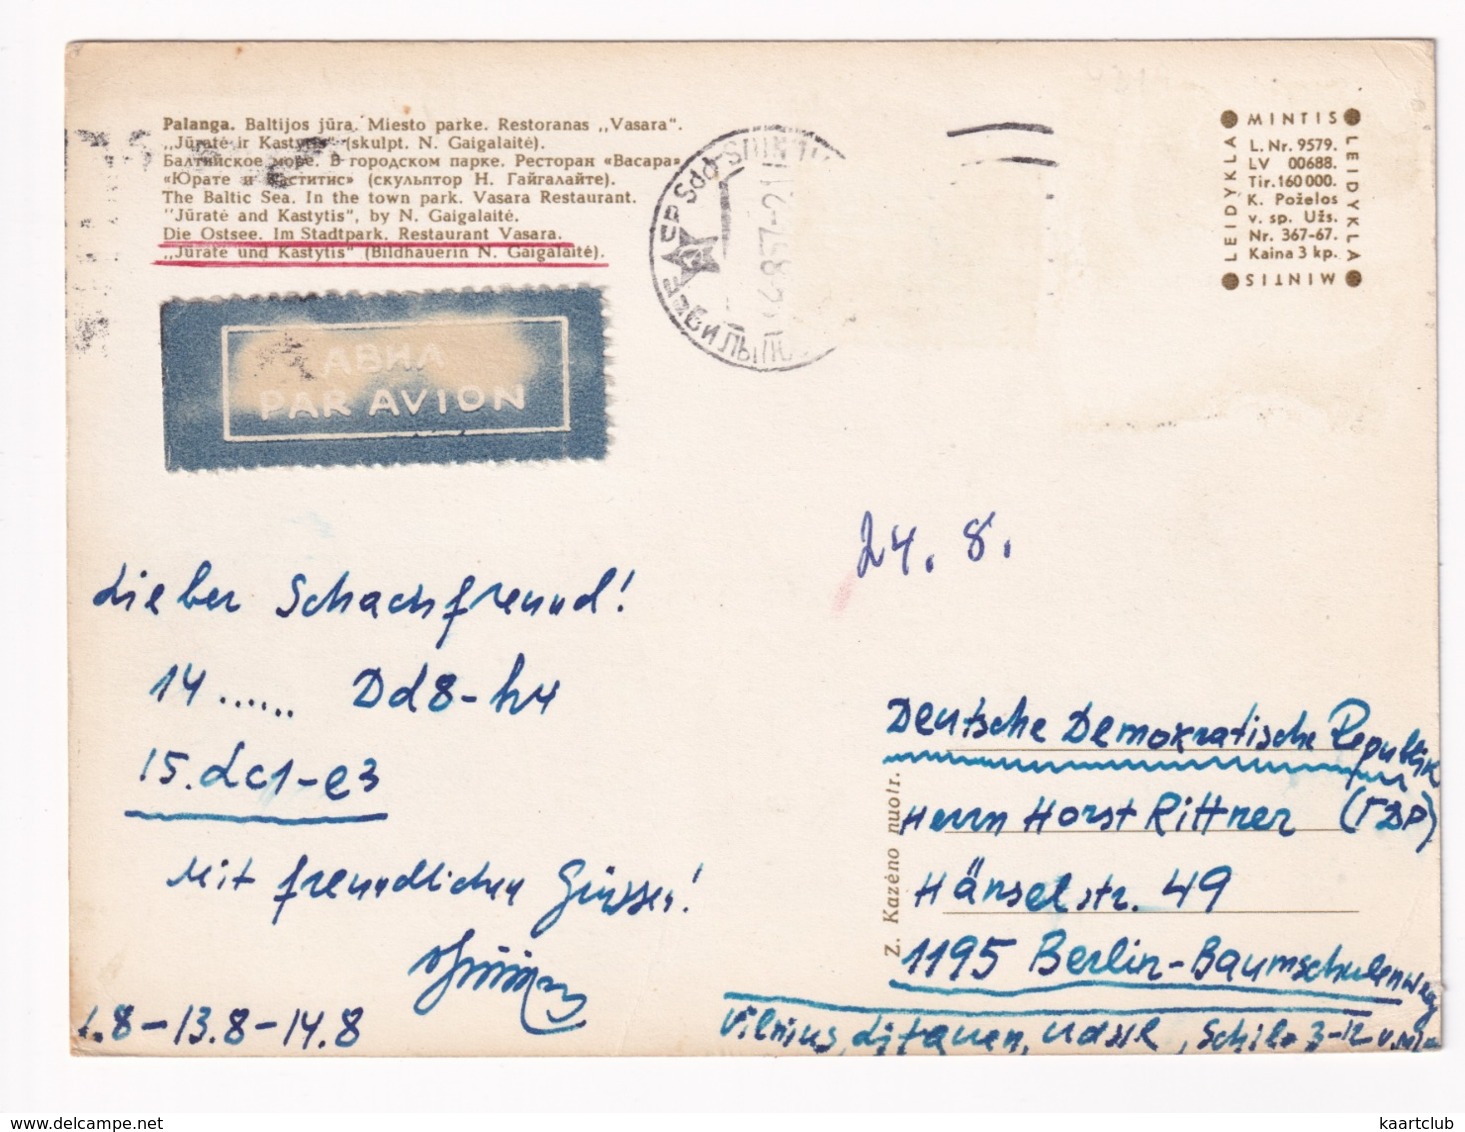 Palanga. Baltijos jūra. Miesto parke. Restoranas „Vasara".
„Jūratė ir Kastytis" (skulpt. N. Gaigalaitė).
Балтийское море. В городском парке. Ресторан «Васара»
«Юрате и Каститис» (скульптор Н. Гайгалайте).
The Baltic Sea. In the town park. Vasara Restaurant.
"Jūratė and Kastytis", by N. Gaigalaitė.
Die Ostsee. Im Stadtpark. Restaurant Vasara.
„Jūratė und Kastytis" (Bildhauerin N. Gaigalaitė).
LEIDYKLA MINTIS
LEIDYKLA MINTIS
L. Nr. 9579.
LV 00688.
Tir. 160 000.
K. Poželos
v. sp. Užs.
Nr. 367-67.
Kaina 3 kp.
АВИА
PAR AVION
24. 8.
Lieber Schachfreund!
14...... Dd8-h4
15. Lc1-e3
Mit freundlichen Grüssen!
.8-13.8-14.8
Z. Kazėno nuotr.
Deutsche Demokratische Republik
Herrn Horst Rittner (ГДР)
Hänselstr. 49
1195 Berlin-Baumschulenweg
Vilnius, Litauen, UdSSR,
kaartclub